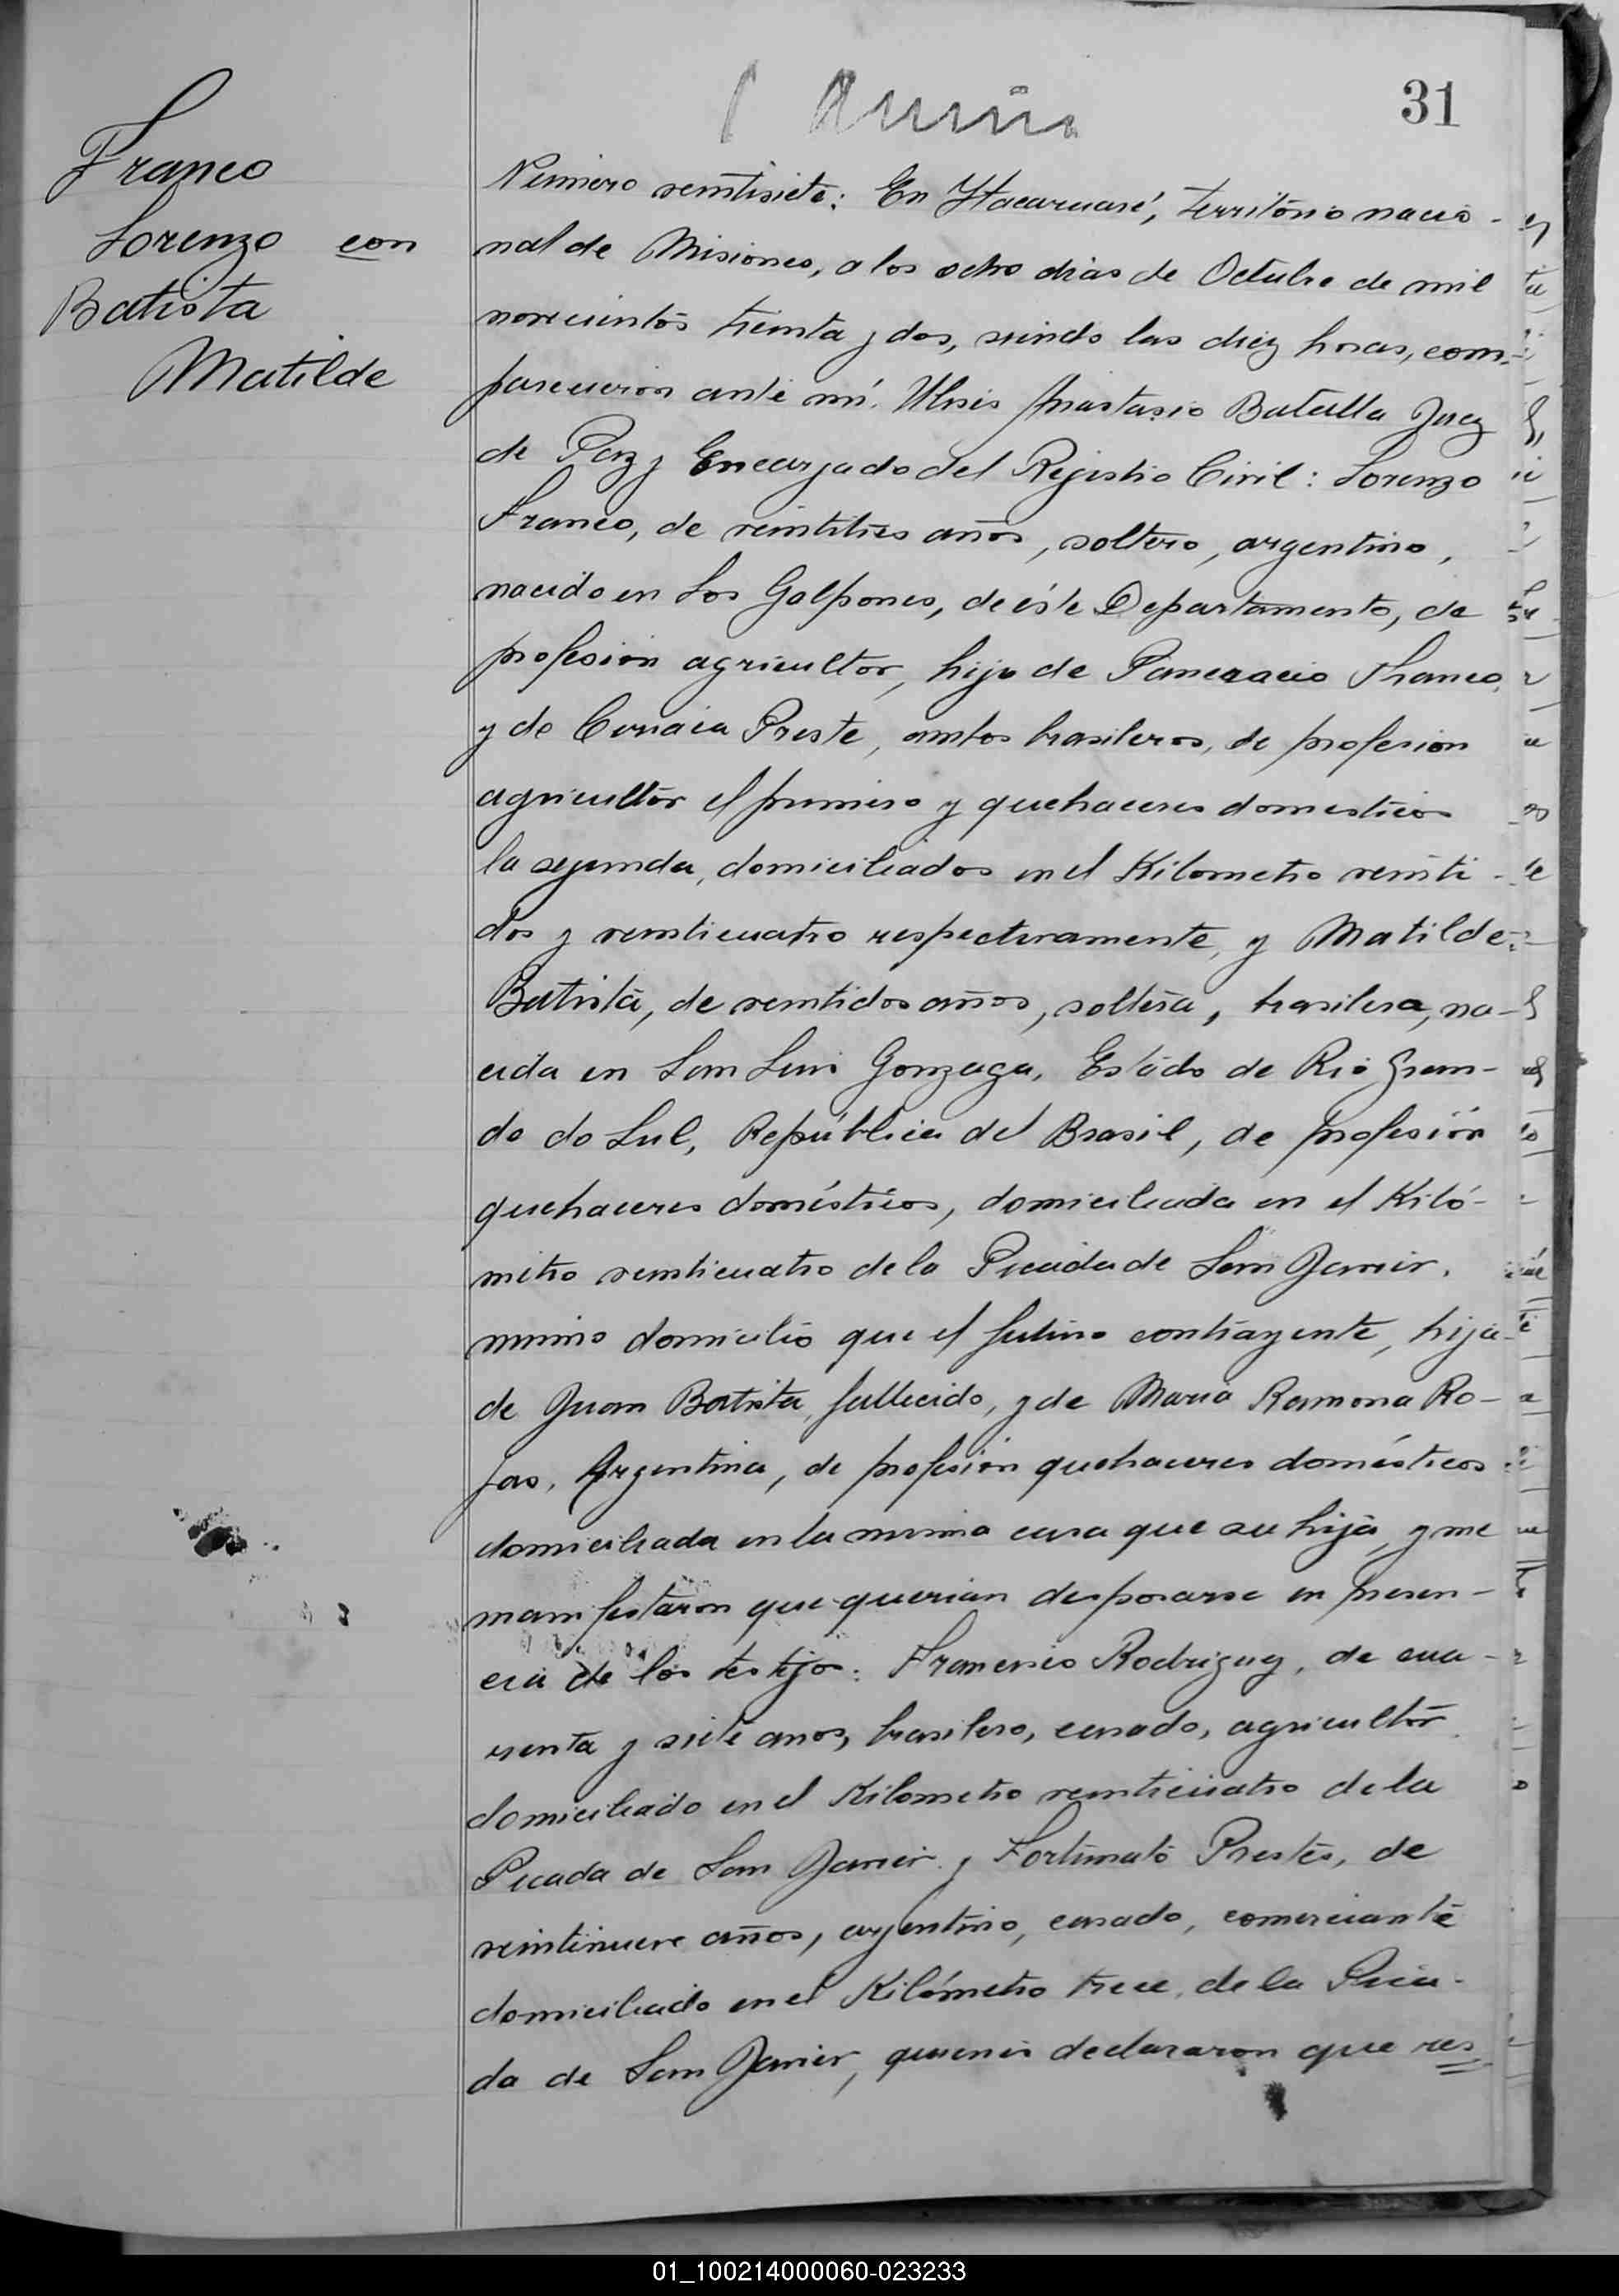 31
Franco
Lorenzo con
Batista
Matilde
Número veintisiete: En Itacaruaré, território nacio-
nal de Misiones, a los ocho dias de Octubre de mil
novecientos treinta y dos, siendo las diez horas, com-
parecieron ante mí, Ulises Anastasio Batalla Juez
de Paz y Encargado del Registro Civil: Lorenzo
Franco, de veintitres años, soltero, argentino,
nacido en Los Galpones, de éste Departamento, de
profesion agricultor, hijo de Pancracio Franco,
y de Preste, ambos brasileros, de profesion
agricultor el primero y quehaceres domesticos
la segunda, domiciliados en el Kilometro veinti-
dos y veinticuatro respectivamente, y Matilde
Batista, de veintidos años, soltera, brasilera, na-
cida en San Luis Gonzaga, Estado de Rio Gran-
do do Sul, República del Brasil, de profesión
quehaceres domésticos, domiciliada en el Kiló-
metro veinticuatro de la Picada de San Javier,
mismo domicilio que el futuro contrayente, hija
de Juan Batista, fallecido, y de Maria Ramona Ro-
jas, Argentina, de profesión quehaceres domésticos
domiciliada en la misma casa que su hija, y me
manifestaron que querian desposarse en presen-
cia de los testijos: Francisco Rodriguez, de cua-
renta y siete anos, brasilero, casado, agricultor
domiciliado en el Kilometro veinticuatro de la
Picada de San Javier y Fortunato Prestes, de
veintinueve años, argentino, casado, comerciante
domiciliado en el Kilómetro trece, de la Pica-
da de San Javier, quienes declararon que res
01_100214000060-023233